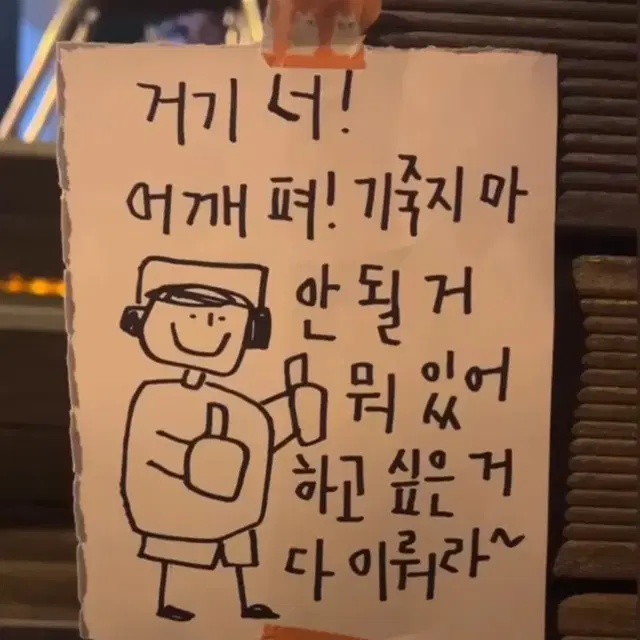 거기 너!
어깨 펴! 기죽지 마
안 될 거
뭐 있어
하고 싶은 거
다 이뤄라~